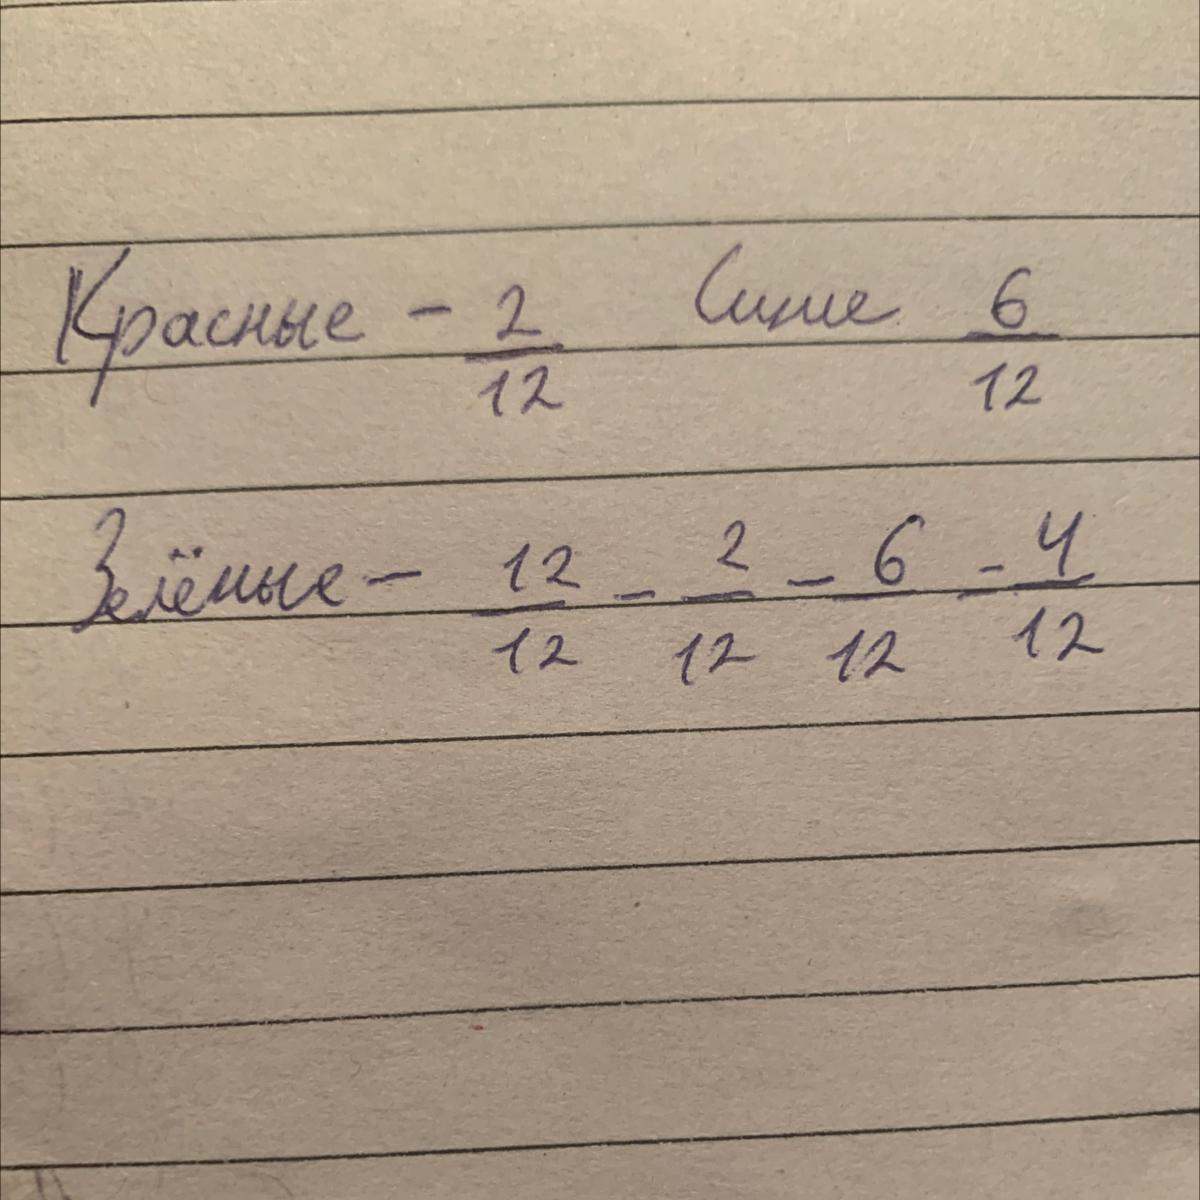 Красные - 2/12 Синие 6/12
Зелёные - 12/12 - 2/12 - 6/12 = 4/12